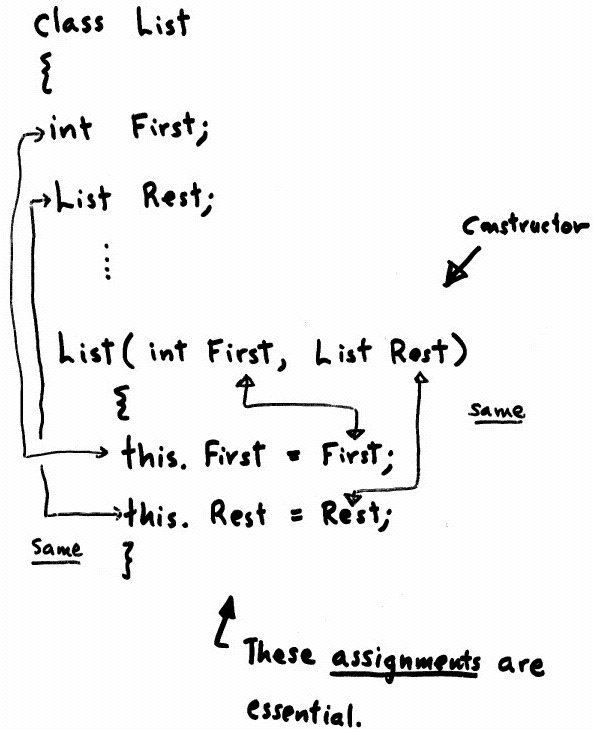 class List
{
int First;
List Rest;
Constructor
List ( int First, List Rest )
{
Same
this. First = First;
this. Rest = Rest;
Same
}
These assignments are
essential.